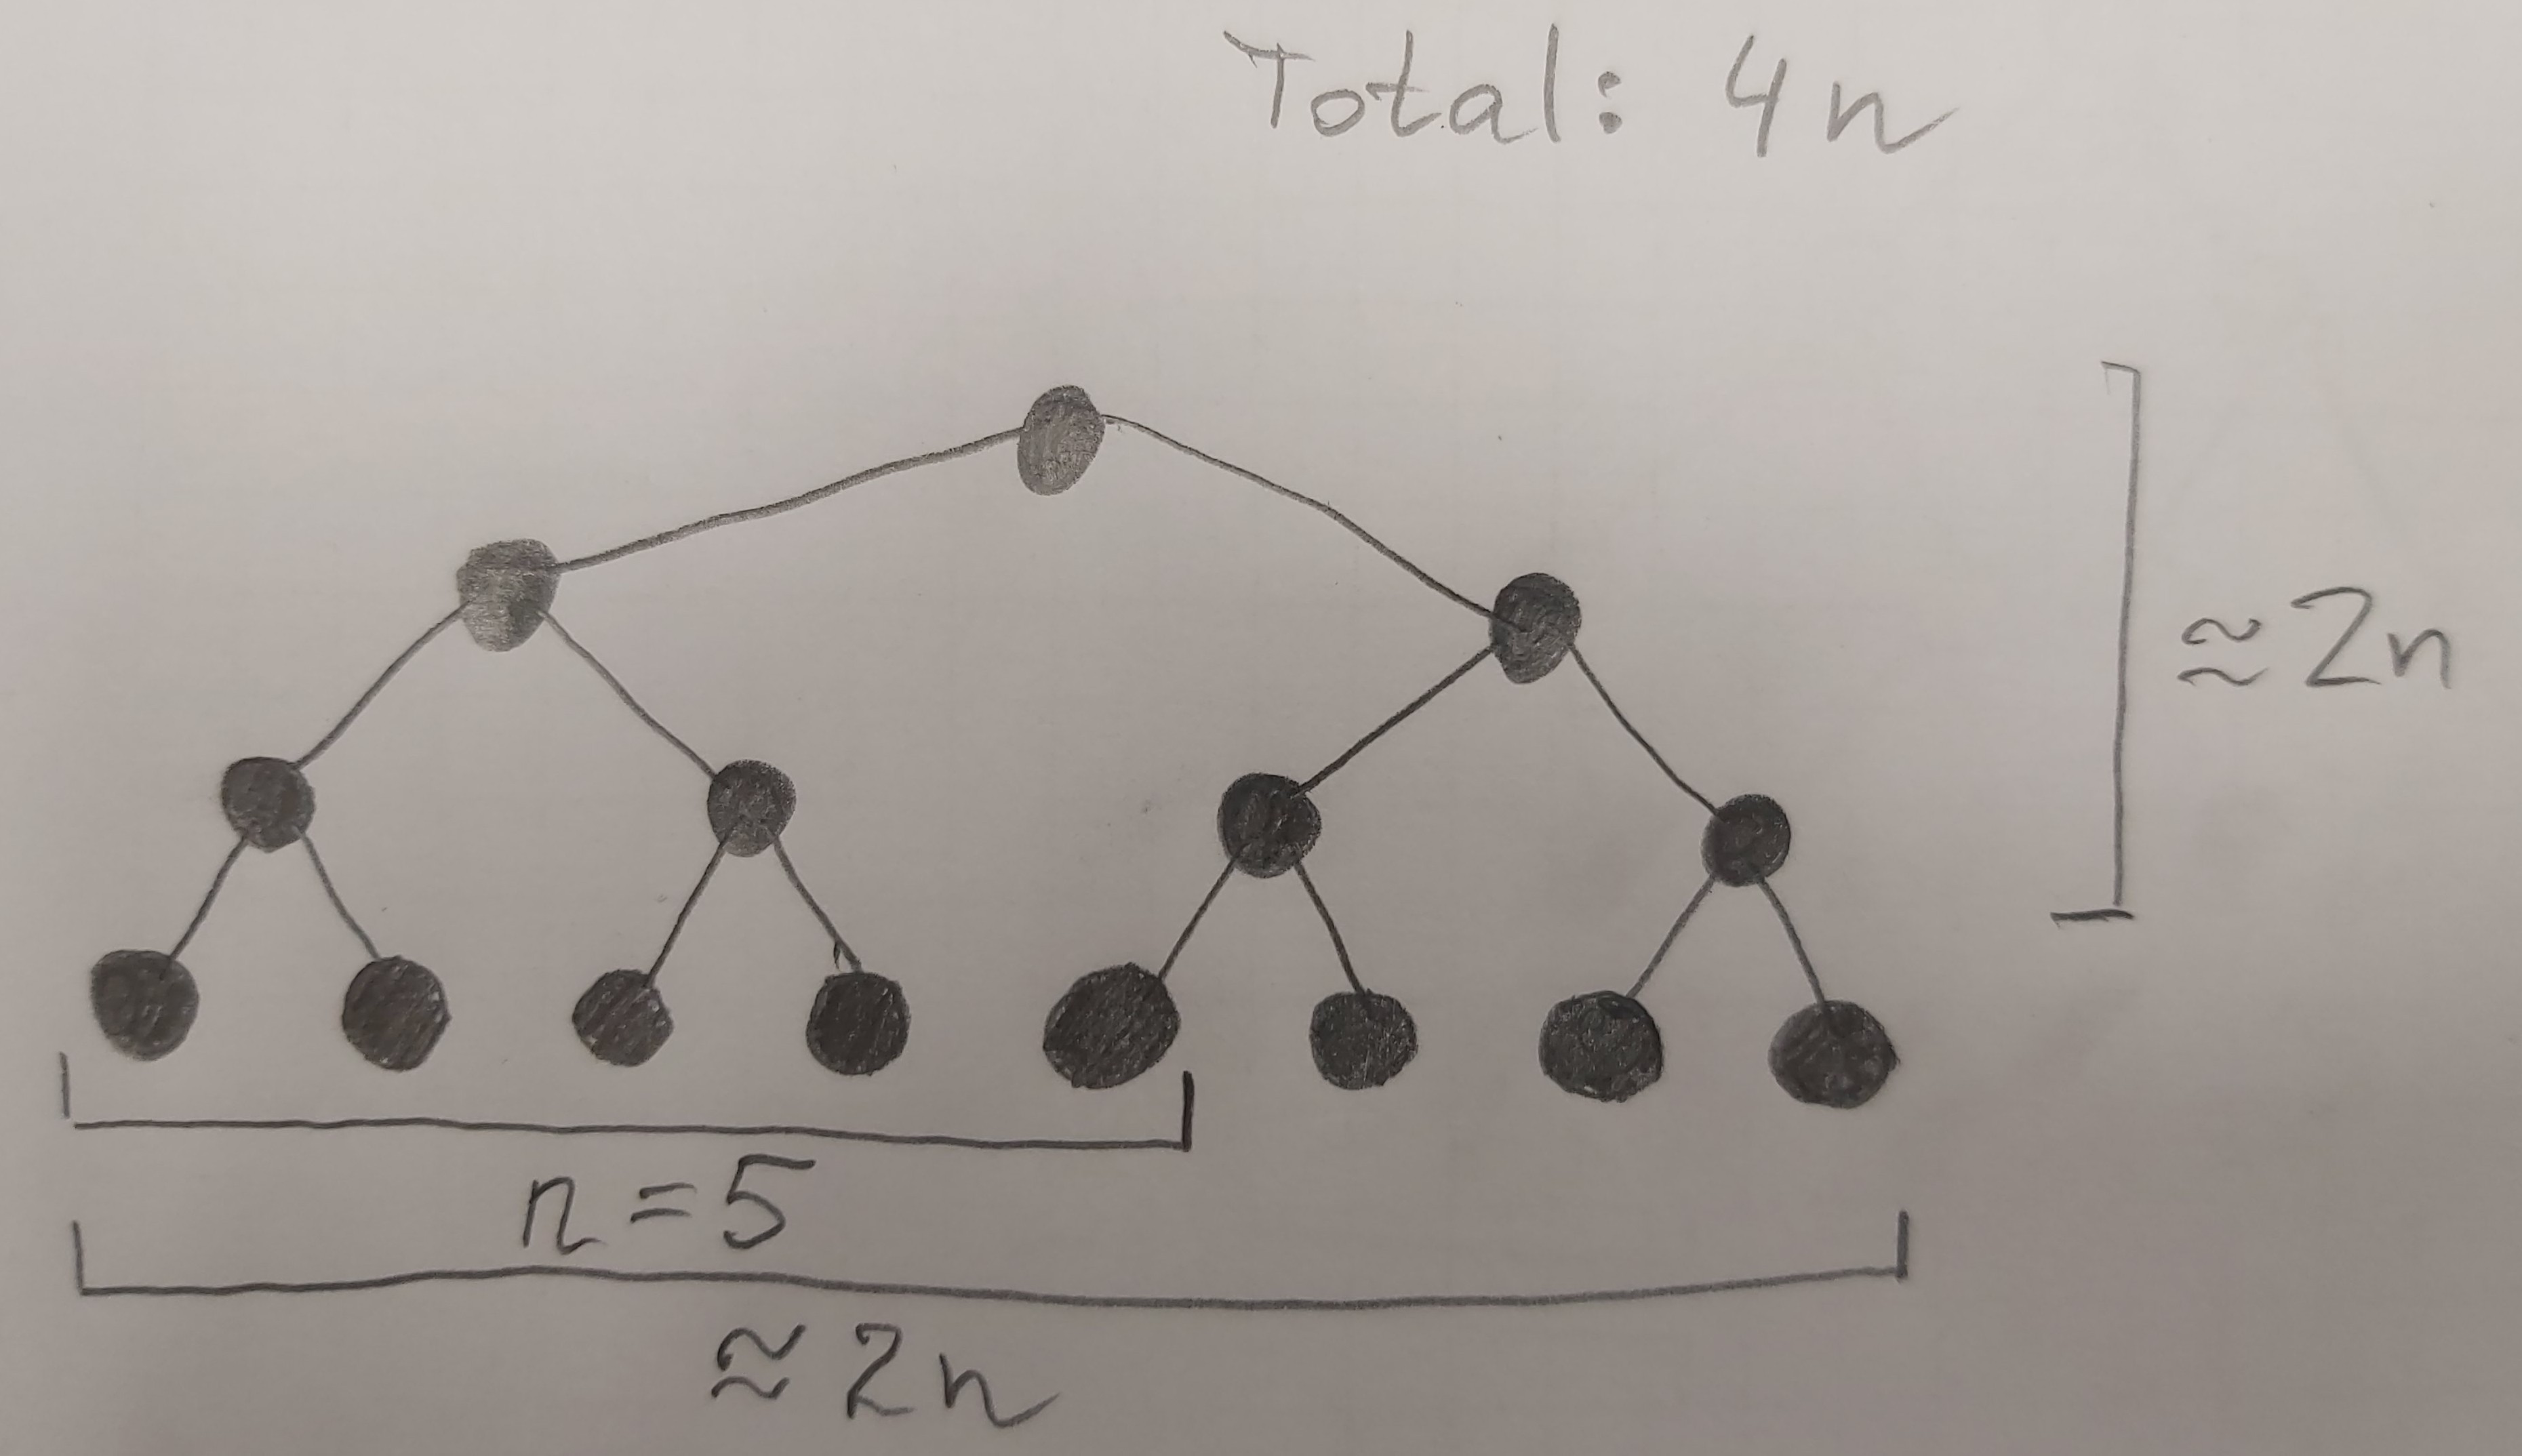 Total: 4n
≈ 2n
n = 5
≈ 2n